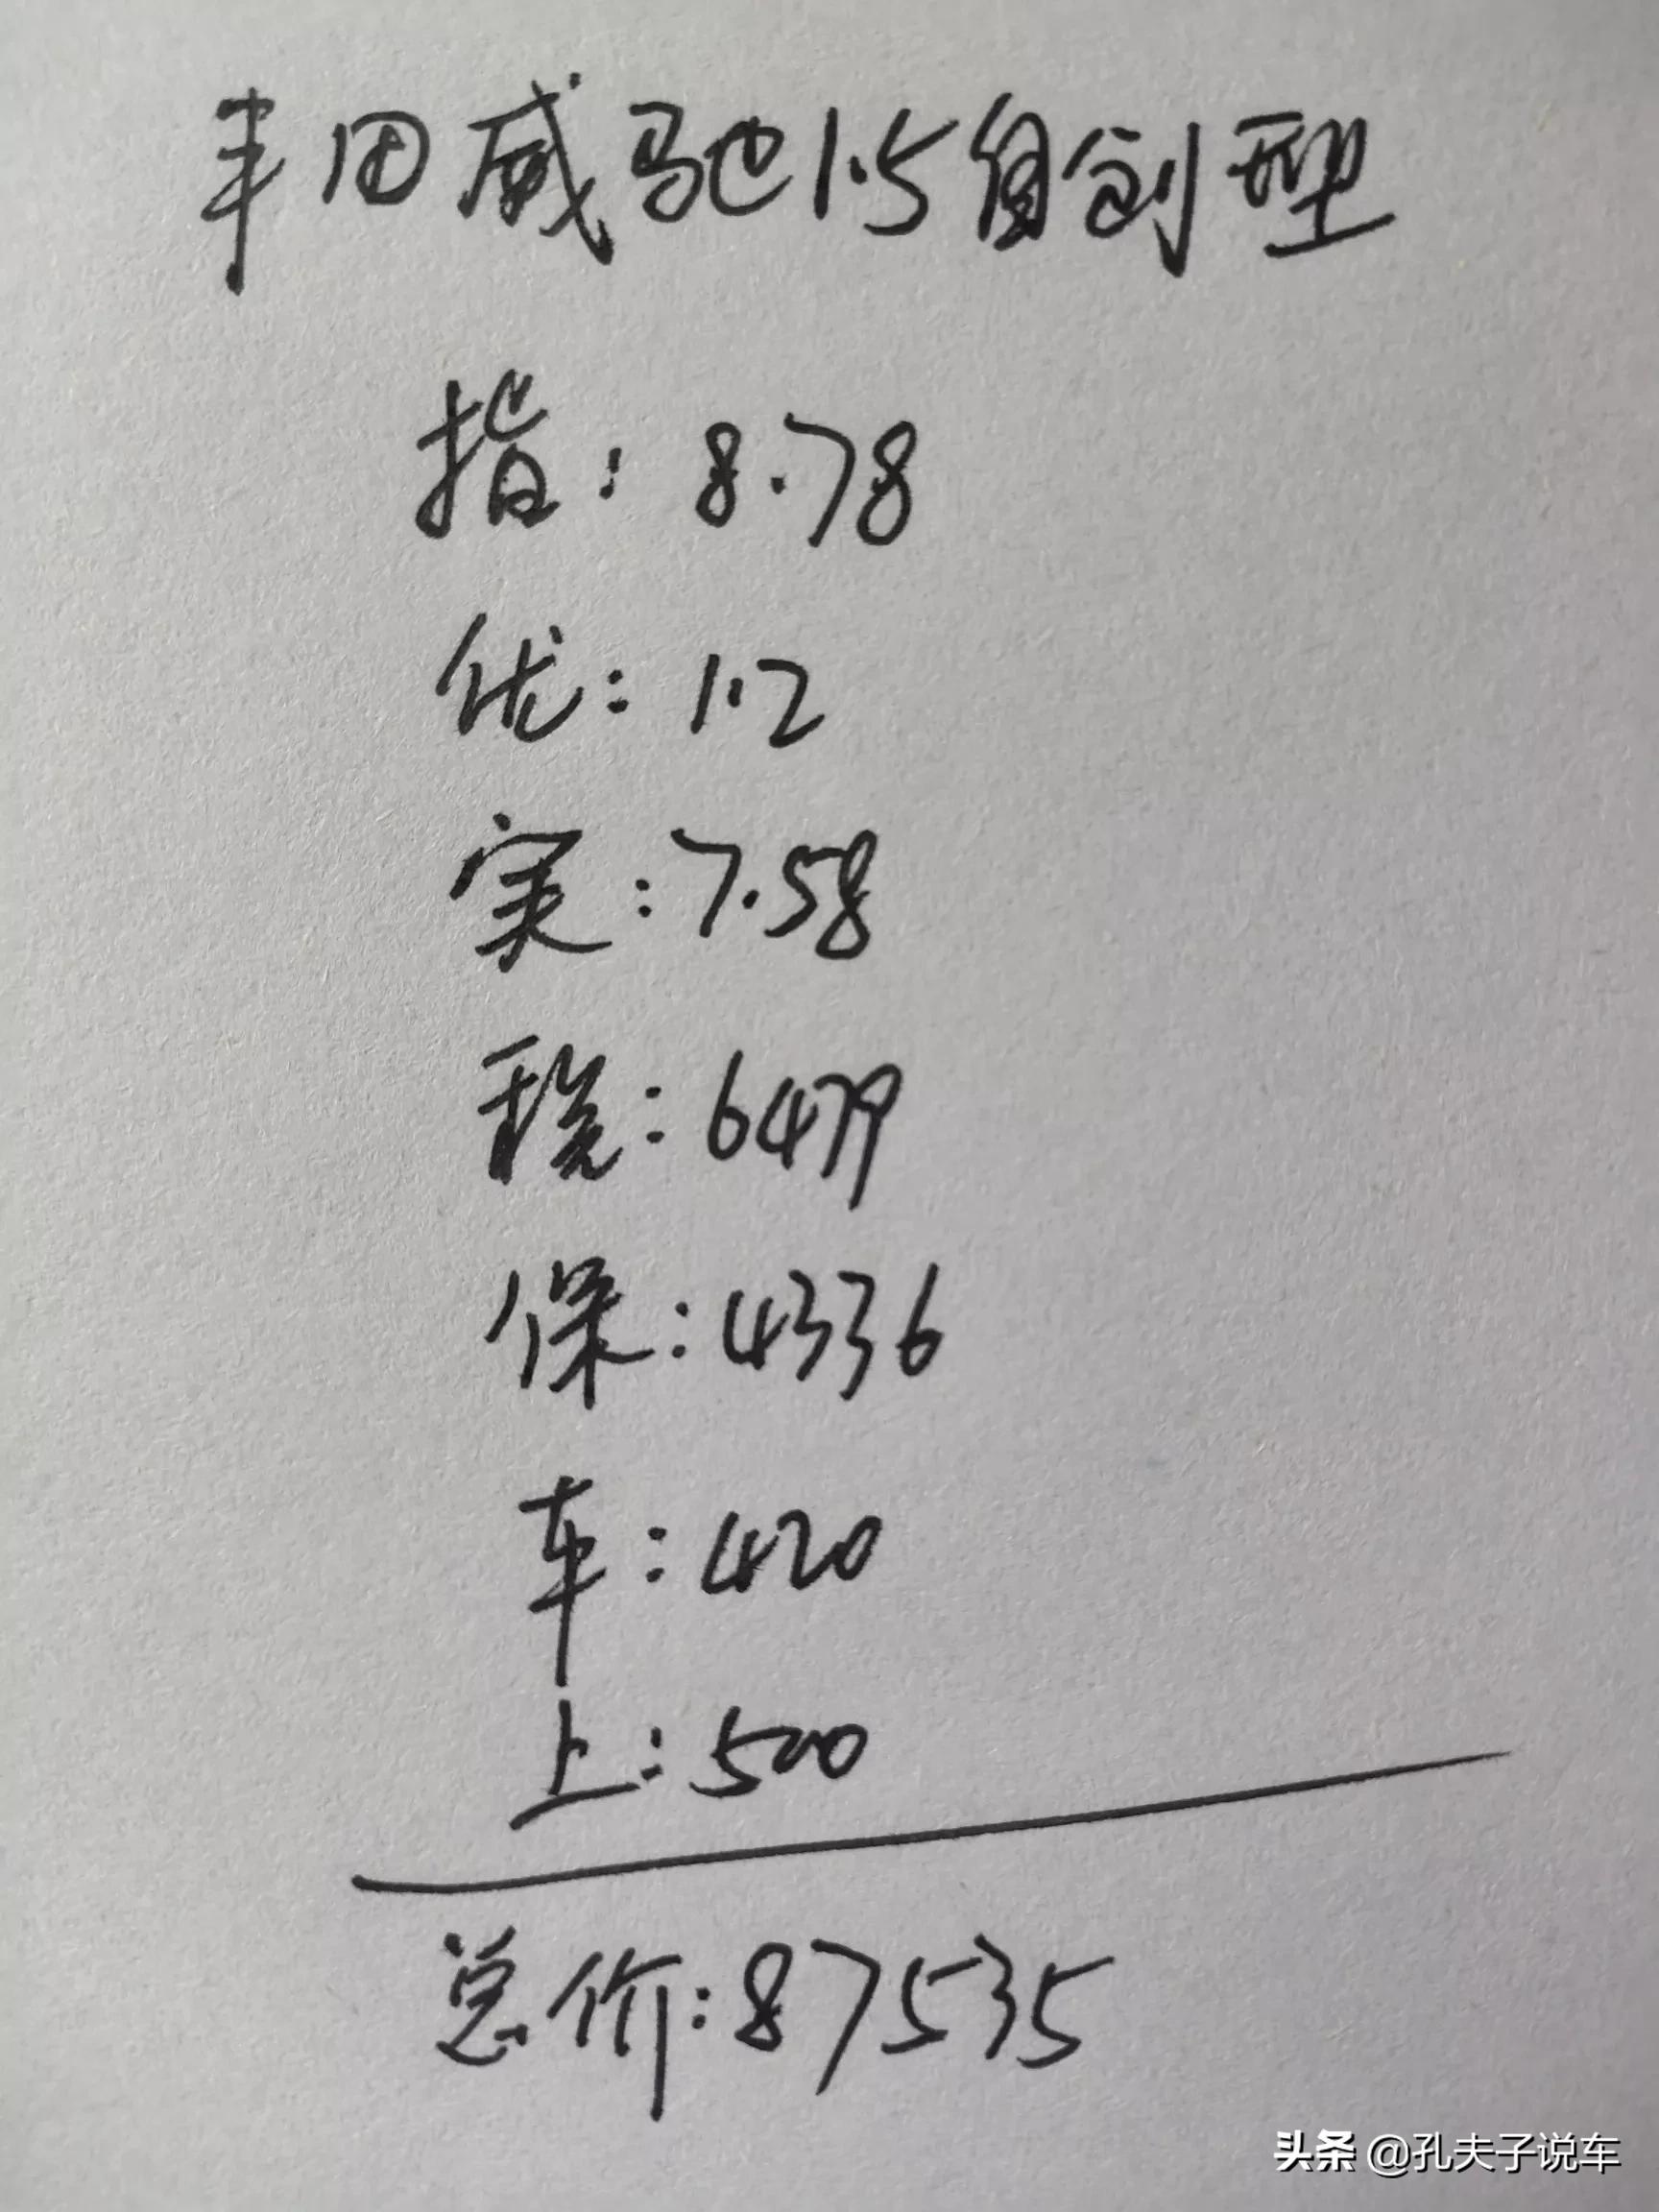 丰田威驰1.5自创型
指:8.78
优:1.2
实:7.58
税:6479
保:4336
车:420
上:500
总价:87535
头条 @孔夫子说车